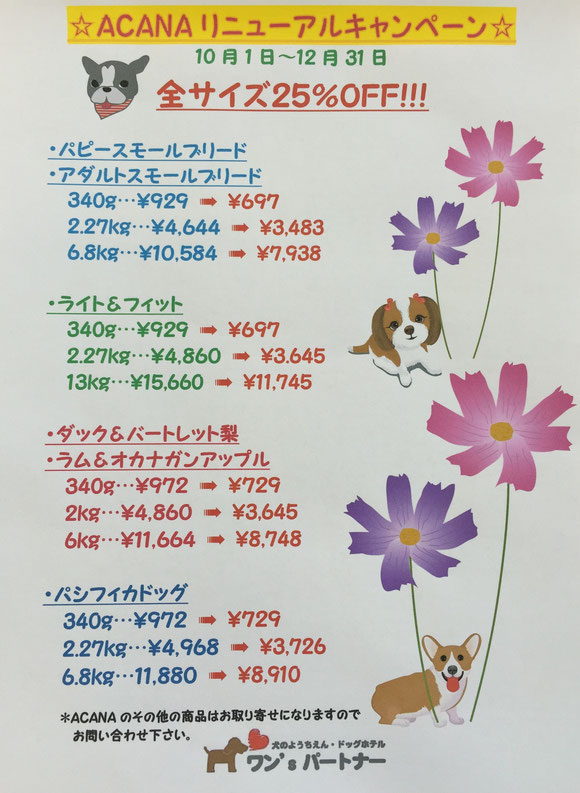 ☆ACANAリニューアルキャンペーン☆
10月1日～12月31日
全サイズ25%OFF!!!
・パピースモールブリード
・アダルトスモールブリード
340g…¥929 ➠ ¥697
2.27kg…¥4,644 ➠ ¥3,483
6.8kg…¥10,584 ➠ ¥7,938
・ライト&フィット
340g…¥929 ➠ ¥697
2.27kg…¥4,860 ➠ ¥3.645
13kg…¥15,660 ➠ ¥11,745
・ダック&バートレット梨
・ラム&オカナガンアップル
340g…¥972 ➠ ¥729
2kg…¥4,860 ➠ ¥3,645
6kg…¥11,664 ➠ ¥8,748
・パシフィカドッグ
340g…¥972 ➠ ¥729
2.27kg…¥4,968 ➠ ¥3,726
6.8kg…11,880 ➠ ¥8,910
*ACANAのその他の商品はお取り寄せになりますので
お問い合わせ下さい。
犬のようちえん・ドッグホテル
ワン'sパートナー